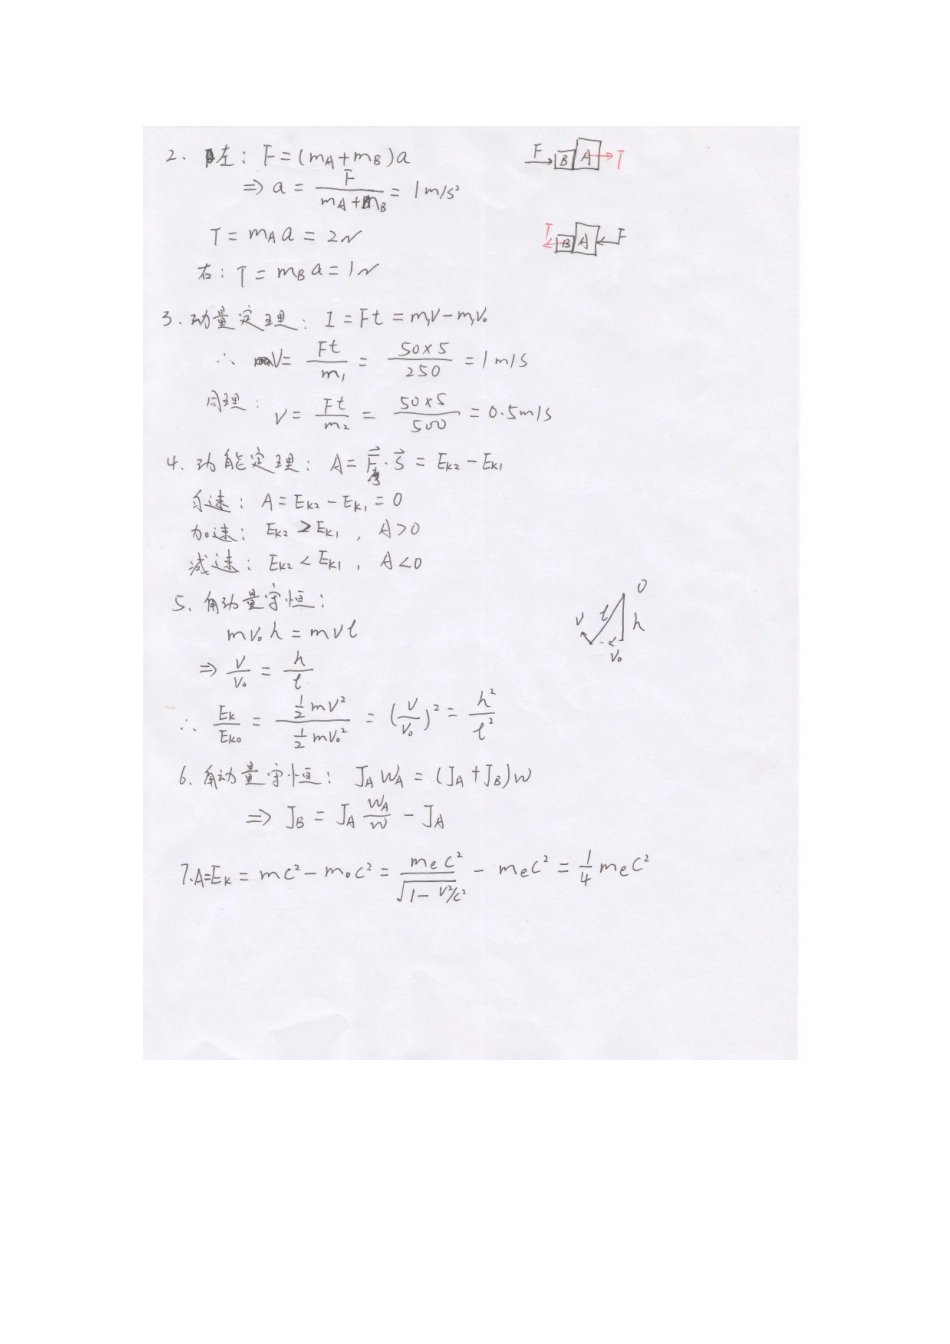 2. 左: F=(mA+mB)a
F B A T
⇒ a = F/(mA+mB) = 1m/s²
T = mAa = 2N
T B A F
右: T = mBa = 1N
3. 动量定理: I = Ft = m₁V-m₁V₀
∴ V = Ft/m₁ = 50×5/250 = 1m/s
同理: V = Ft/m₂ = 50×5/500 = 0.5m/s
4. 功能定理: A = F⃗·S⃗ = Ek₂-Ek₁
匀速: A = Ek₂-Ek₁ = 0
加速: Ek₂>Ek₁, A>0
减速: Ek₂<Ek₁, A<0
5. 角动量守恒:
O V l h V₀
mV₀h = mvl
⇒ V/V₀ = h/l
∴ Ek/Ek₀ = ½mV²/½mV₀² = (V/V₀)² = h²/l²
6. 角动量守恒: JAWA = (JA+JB)W
⇒ JB = JA WA/W - JA
7. A=Ek = mc²-m₀c² = mec²/√(1-V²/c²) - mec² = ¼mec²